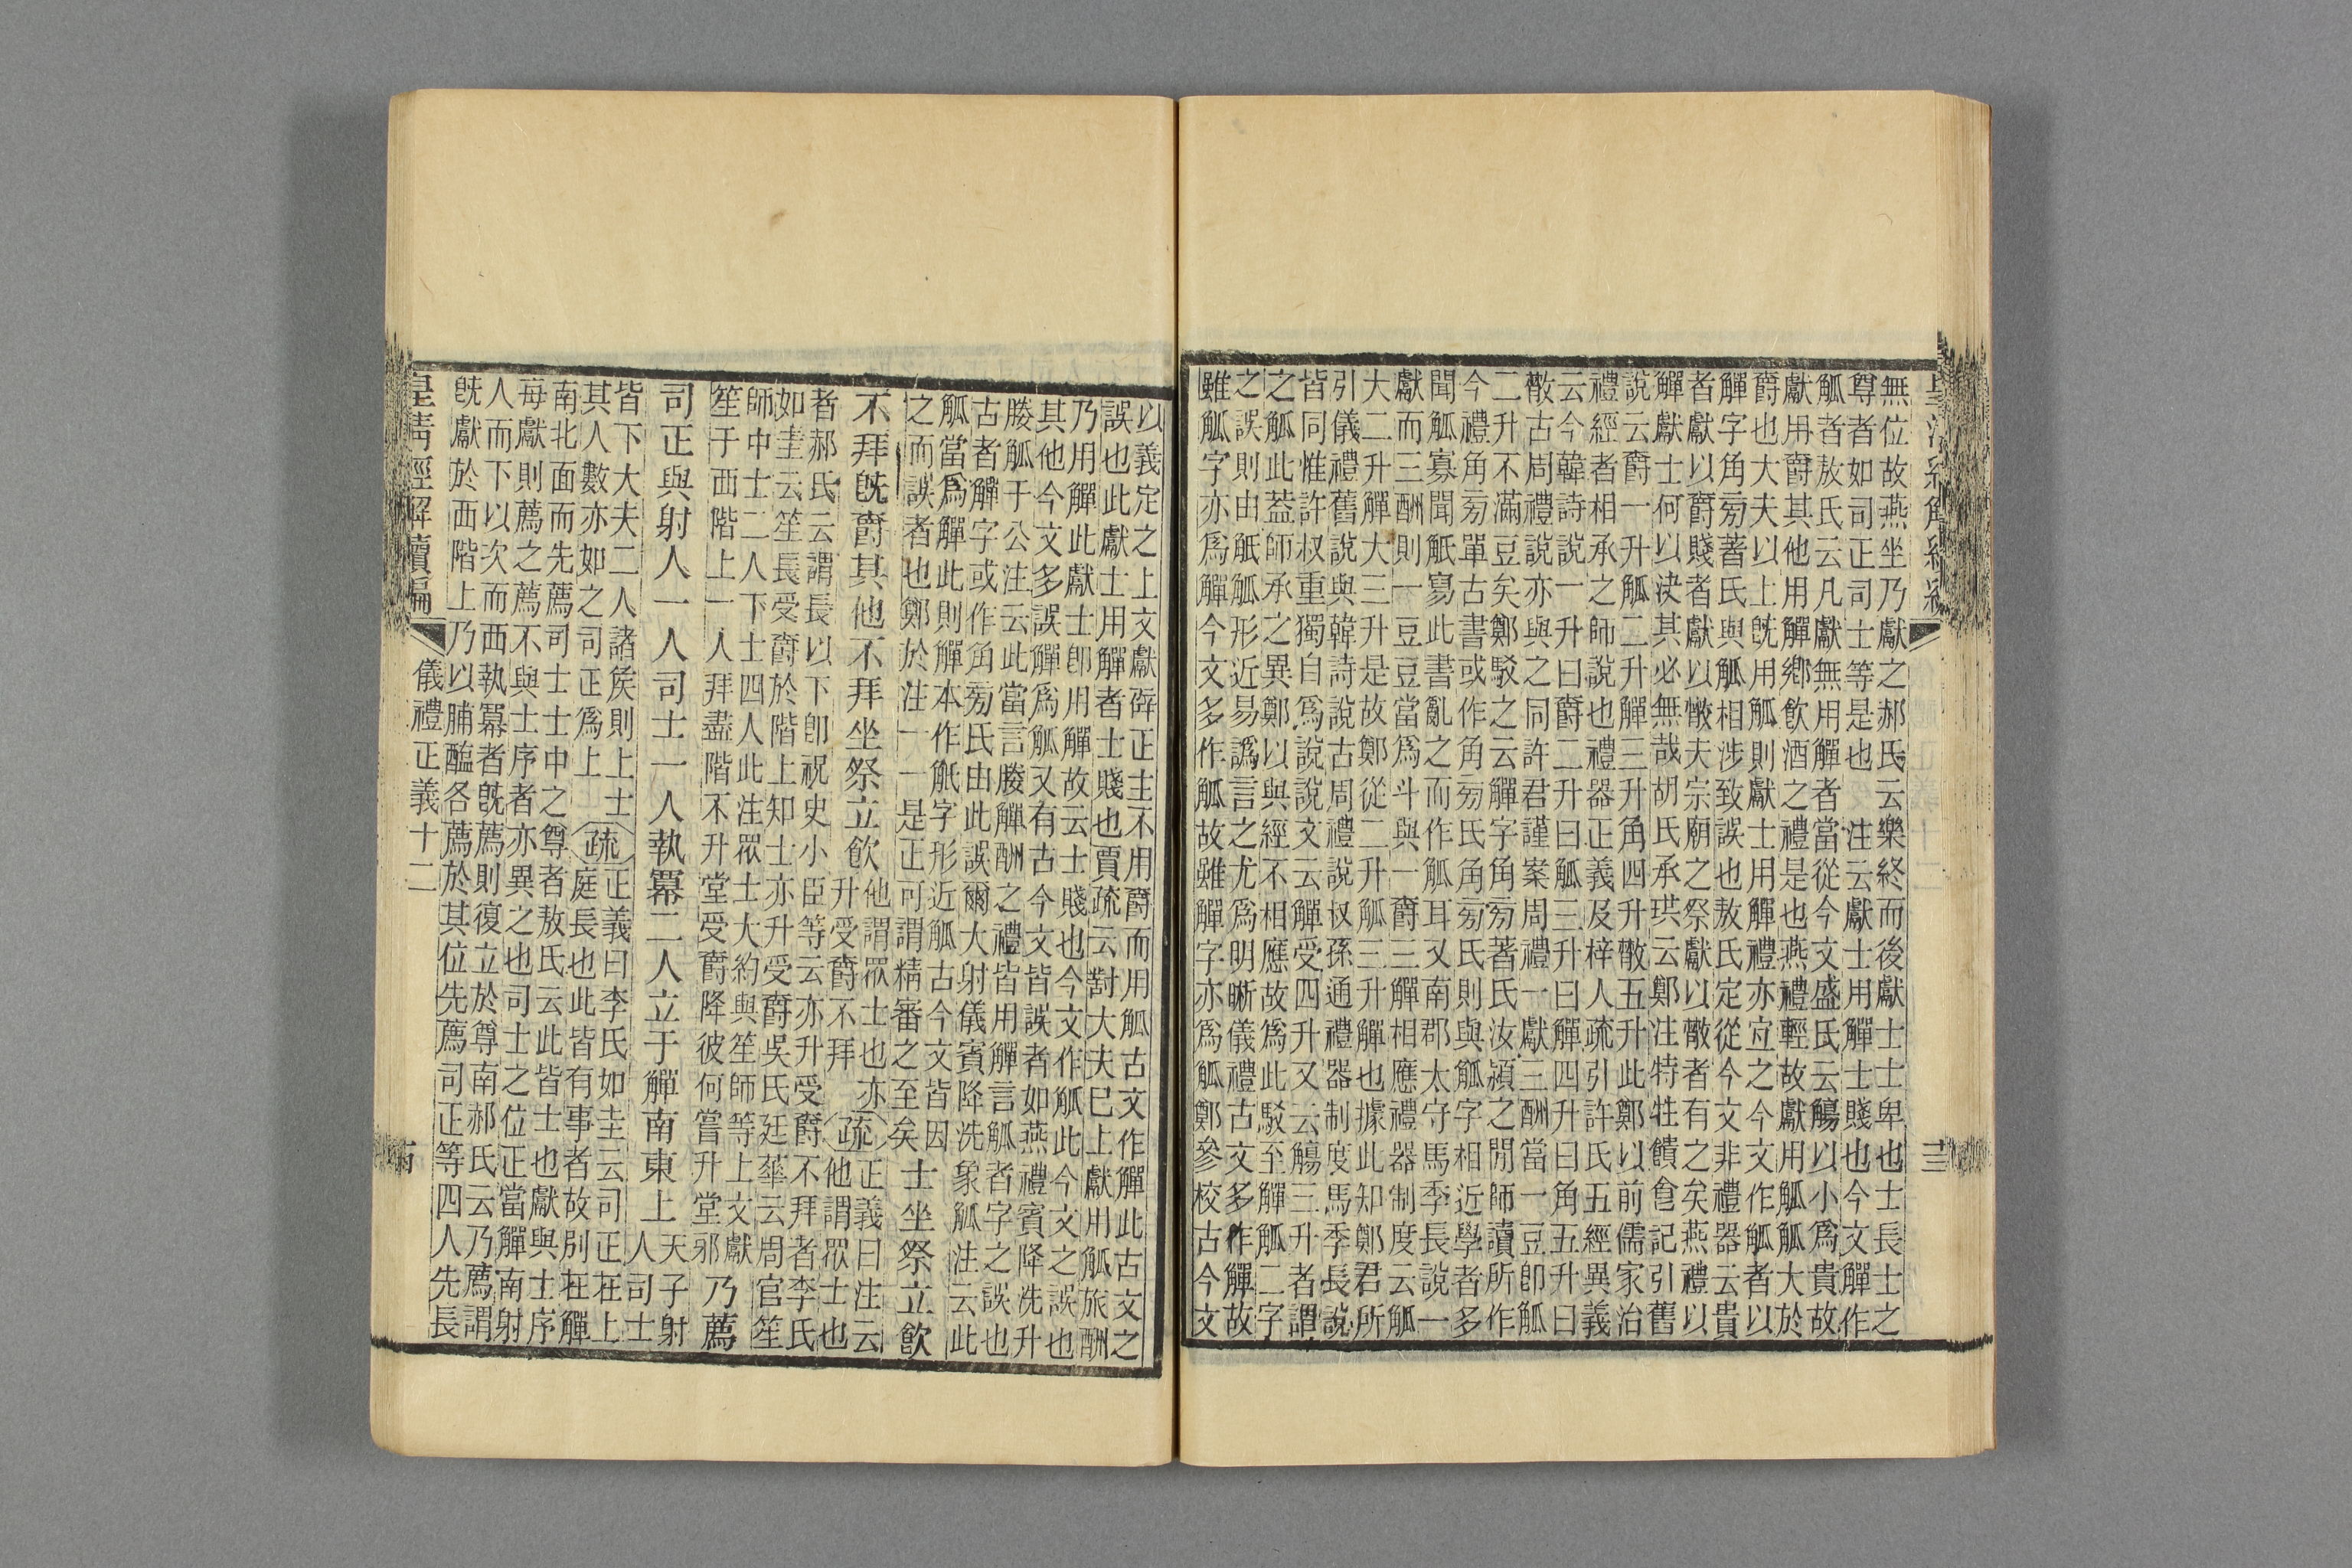 皇清經解續編
十三
無位故燕坐乃獻之郝氏云樂終而後獻士士卑也士長士之
尊者如司正司士等是也 注云獻士用觶士賤也今文觶作
觚者敖氏云凡獻無用觶者當從今文盛氏云觴以小爲貴故
獻用爵其他用觶鄉飮酒之禮是也燕禮輕故獻用觚觚大於
爵也大夫以上旣用觚則獻士用觶禮亦宜之今文作觚者以
觶字角㫄著氏與觚相涉致誤也敖氏定從今文非禮器云貴
者獻以爵賤者獻以散夫宗廟之祭獻以散者有之矣燕禮以
觶獻士何以決其必無哉胡氏承珙云鄭注特牲饋食記引舊
說云爵一升觚二升觶三升角四升散五升此鄭以前儒家治
禮經者相承之師說也禮器正義及梓人疏引許氏五經異義
云今韓詩說一升曰爵二升曰觚三升曰觶四升曰角五升曰
散古周禮說亦與之同許君謹案周禮一獻三酬當一豆卽觚
二升不滿豆矣鄭駁之云觶字角㫄著氏汝潁之閒師讀所作
今禮角㫄單古書或作角㫄氏角㫄氏則與觚字相近學者多
聞觚寡聞觝寫此書亂之而作觚耳又南郡太守馬季長說一
獻而三酬則一豆豆當爲斗與一爵三觶相應禮器制度云觚
大二升觶大三升是故鄭從二升觚三升觶也據此知鄭君所
引儀禮舊說與韓詩說古周禮說叔孫通禮器制度馬季長說
皆同惟許叔重獨自爲說說文云觶受四升又云觴三升者謂
之觚此蓋師承之異鄭以與經不相應故爲此駁至觶觚二字
之誤則由觝觚形近易譌言之尤爲明晰儀禮古文多作觶故
雖觚字亦爲觶今文多作觚故雖觶字亦爲觚鄭參校古今文
以義定之上文獻辟正主不用爵而用觚古文作觶此古文之
誤也此獻士用觶者士賤也賈疏云對大夫已上獻用觚旅酬
乃用觶此獻士卽用觶故云士賤也今文作觚此今文之誤也
其他今文多誤觶爲觚又有古今文皆誤者如燕禮賓降洗升
媵觚于公注云此當言媵觶酬之禮皆用觶言觚者字之誤也
古者觶字或作角㫄氏由此誤爾大射儀賓降洗象觚注云此
觚當爲觶此則觶本作觝字形近觚古今文皆因
之而誤者也鄭於注一一是正可謂精審之至矣
士坐祭立飮
不拜旣爵其他不拜坐祭立飮
他謂眾士也亦
升受爵不拜
疏
正義曰注云
他謂眾士也
者郝氏云謂長以下卽祝史小臣等云亦升受爵不拜者李氏
如圭云笙長受爵於階上知士亦升受爵吳氏廷華云周官笙
師中士二人下士四人此注眾士大約與笙師等上文獻
笙于西階上一人拜盡階不升堂受爵降彼何嘗升堂邪
乃薦
司正與射人一人司士一人執冪二人立于觶南東上
天子射
人司士
皆下大夫二人諸矦則上士
其人數亦如之司正爲上
疏
正義曰李氏如圭云司正在上
庭長也此皆有事者故別在觶
南北面而先薦司士士中之尊者敖氏云此皆士也獻與士序
每獻則薦之薦不與士序者亦異之也司士之位正當觶南射
人而下以次而西執冪者旣薦則復立於尊南郝氏云乃薦謂
旣獻於西階上乃以脯醢各薦於其位先薦司正等四人先長
皇清經解續編
儀禮正義十二